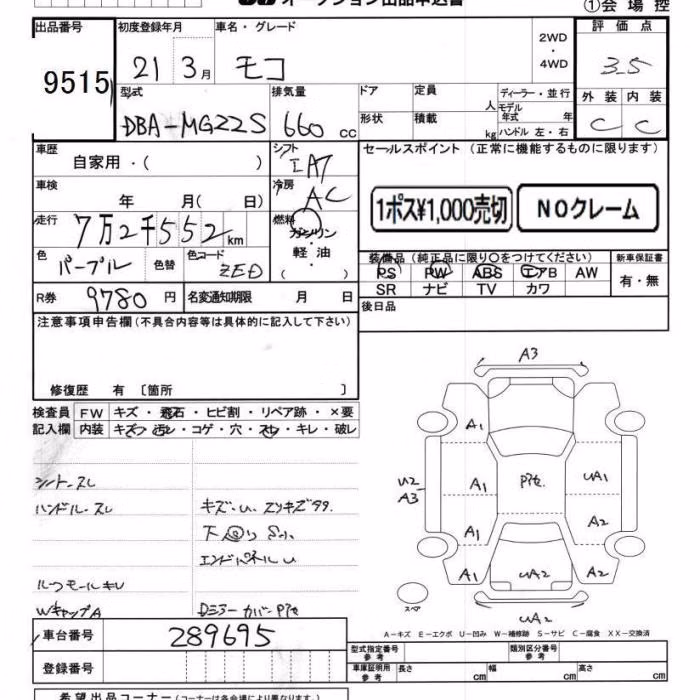 オークション出品申込書
①会場控
出品番号 初度登録年月 車名・グレード 2WD・4WD 評価点
9515 21 3月 モコ 3.5
型式 排気量 ドア 定員 人 ディーラー・並行 外装 内装
DBA-MG22S 660 cc 形状 積載 kg モデル年式 年 C C
ハンドル 左・右
車歴 自家用・( ) シフト IAT セールスポイント (正常に機能するものに限ります)
車検 年 月( 日) 冷房 AC
1ポス¥1,000売切 NOクレーム
走行 7万2千552km 燃料 ガソリン・軽油・( )
色 パープル 色替 色コード ZED
装備品 (純正品に限り○をつけてください) 新車保証書
PS PW ABS エアB AW 有・無
SR ナビ TV カワ
R券 9780円 名変通知期限 月 日
後日品
注意事項申告欄 (不具合内容等は具体的に記入して下さい)
修復歴 有 〔箇所 〕
検査員 FW キズ・飛石・ヒビ割・リペア跡・×要
記入欄 内装 キズ・汚レ・コゲ・穴・スレ・キレ・破レ
シートスレ
ハンドルスレ キズ・U、スリキズ
下回りサビ
エンドパネルU
ルーフモールキレ
WキャップA Dミラーカバー
A3
A1
U2 A3 A1 UA1
A1 A2
A1 UA2 A2
スペア
UA2
A-キズ E-エクボ U-凹み W-補修跡 S-サビ C-腐食 XX-交換済
車台番号 289695
型式指定番号 参考 類別区分番号 参考
登録番号 車庫証明用 参考 長さ cm 幅 cm 高さ cm
希望出品コーナー (コーナーは各会場により異なります。)